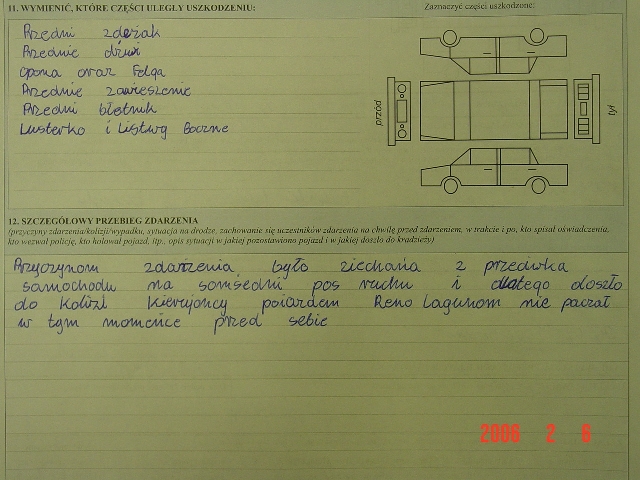 11. WYMIENIĆ, KTÓRE CZĘŚCI ULEGŁY USZKODZENIU:
Zaznaczyć części uszkodzone:
Przedni zdeżak
Przednie dżwi
opona oraz Felga
Przednie zawieszenie
Przedni błotnik
Lusterko i Listwy Boczne
przód
tył
12. SZCZEGÓŁOWY PRZEBIEG ZDARZENIA
(przyczyny zdarzenia/kolizji/wypadku, sytuacja na drodze, zachowanie się uczestników zdarzenia na chwilę przed zdarzeniem, w trakcie i po, kto spisał oświadczenia,
kto wezwał policję, kto holował pojazd, itp., opis sytuacji w jakiej pozostawiono pojazd i w jakiej doszło do kradzieży)
Przyczynom zdarzenia było ziechana z przediwka
samochodu na somsedni pos ruchu i dlatego doszło
do kolizi Kierujoncy poiazdem Reno Lagunom nie paczał
w tym momence przed sebie
2006 2 8